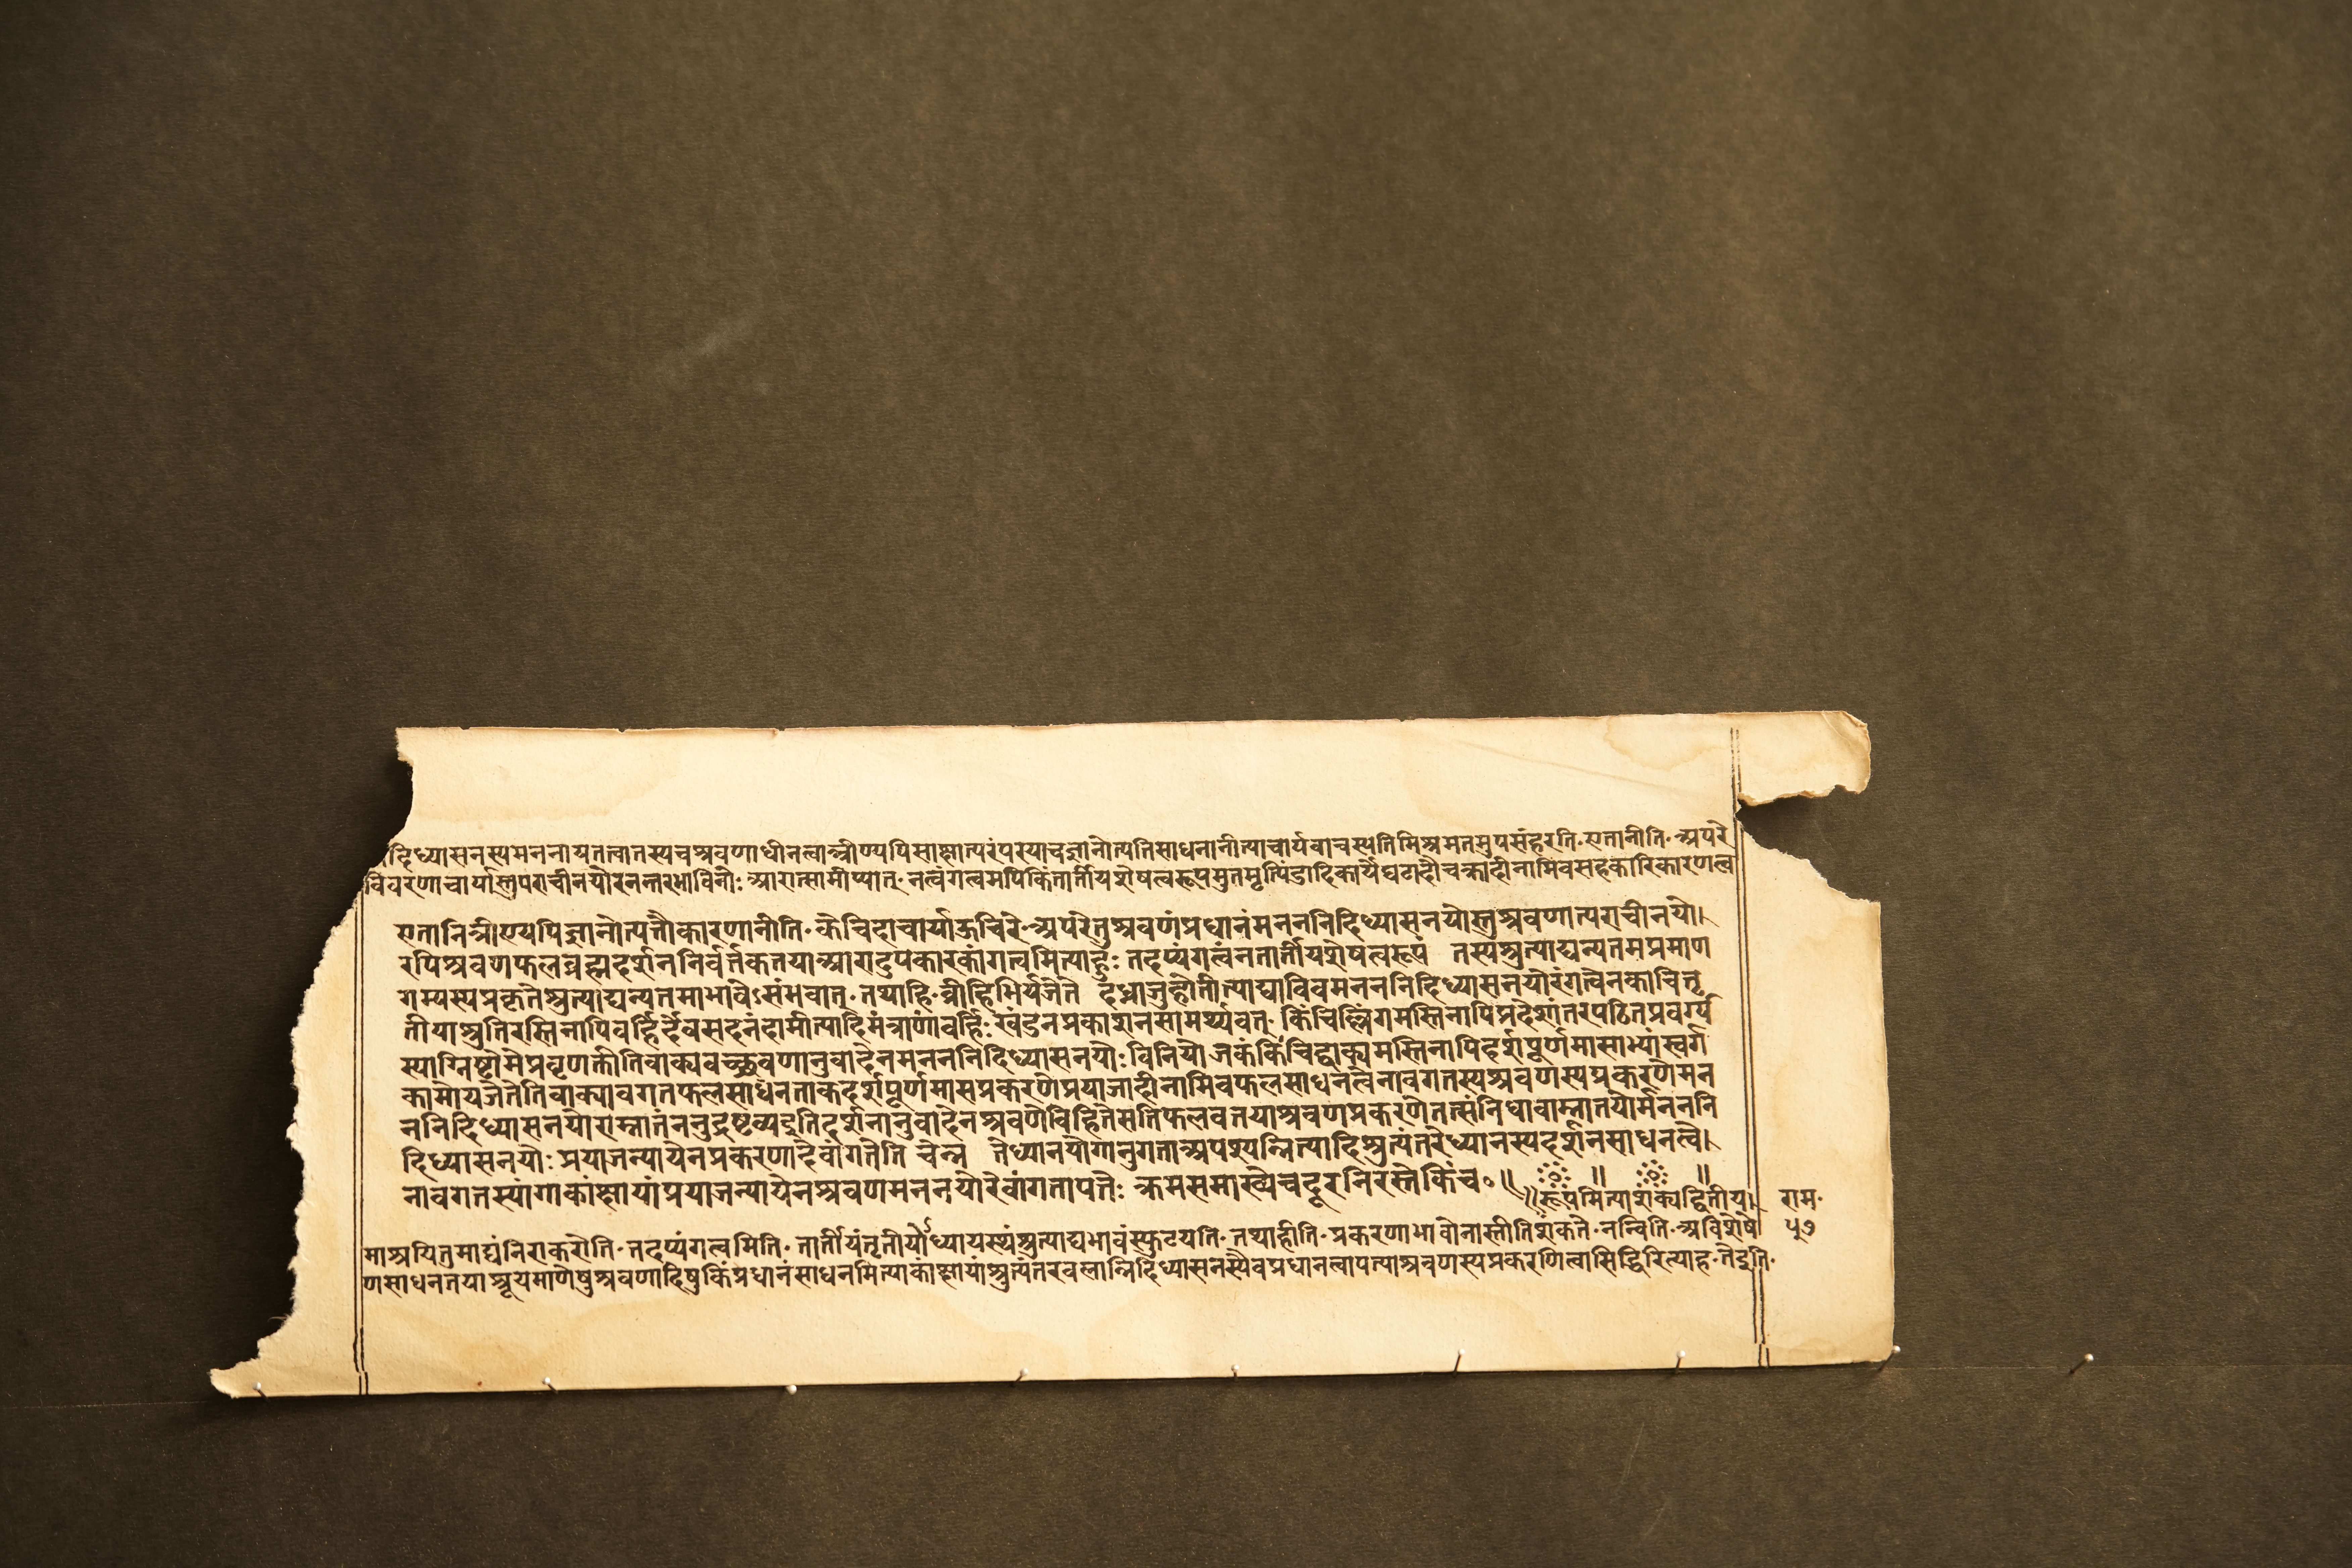 दिध्यासनस्यमननायतत्वातस्यचश्रवणाधीनत्वात्त्रीण्यपिसाक्षात्परंपरयाचज्ञानोत्पतिसाधनानीत्याचार्यवाचस्पतिमिश्रमतमुपसंहरति॰एतानीति॰अपरे
विवरणाचार्यास्तुपराचीनयोरनन्तरभाविनोः आरात्सामीप्यात्॰नत्वंगत्वमपिकिंतार्तीयशेषत्वरूपमुतमृत्पिंडादिकार्येघटादौचक्रादीनामिवसहकारिकारणत्व
एतानित्रीण्यपिज्ञानोत्पत्तौकारणानीति॰केचिदाचार्याऊचिरे॰अपरेतुश्रवणंप्रधानंमनननिदिध्यासनयोस्तुश्रवणात्पराचीनयो।
रपिश्रवणफलब्रह्मदर्शननिर्वर्तकतयाआरादुपकारकांगत्वमित्याहुः तदप्यंगत्वंनतार्तीयशेषत्वरूपं तस्यश्रुत्याद्यन्यतमप्रमाण
गम्यस्यप्रकृतेश्रुत्याद्यन्यतमाभावेऽसंभवात्॰तथाहि॰व्रीहिभिर्यजेते दध्नाजुहोतीत्याद्याविवमनननिदिध्यासनयोरंगत्वेनकाचितृ
तीयाश्रुतिरस्तिनापिबर्हिर्देवसदनंदामीत्यादिमंत्राणांबर्हिःखंडनप्रकाशनसामर्थ्यवत्॰किंचिल्लिंगमस्तिनापिप्रदेशांतरपठितप्रवर्ग्य
स्याग्निष्टोमेप्रवृणक्तीतिवाक्यवच्छ्रवणानुवादेनमनननिदिध्यासनयोःविनियोजकंकिंचिद्वाक्यमस्तिनापिदर्शपूर्णमासाभ्यांस्वर्ग
कामोयजेतेतिवाक्यावगतफलसाधनताकदर्शपूर्णमासप्रकरणेप्रयाजादीनामिवफलसाधनत्वेनावगतस्यश्रवणस्यप्रकरणेमन
ननिदिध्यासनयोराम्नातंननुद्रष्टव्यइतिदर्शनानुवादेनश्रवणेविहितेसतिफलवतयाश्रवणप्रकरणेतत्संनिधावाम्नातयोर्मनननि
दिध्यासनयोः प्रयाजन्यायेनप्रकरणादेवांगतेति चेन्न तेध्यानयोगानुगताअपश्यन्नित्यादिश्रुत्यंतरेध्यानस्यदर्शनसाधनत्वे।
नावगतस्यांगाकांक्षायांप्रयाजन्यायेनश्रवणमननयोरेवांगतापत्तेः क्रमसमाख्येचदूरनिरस्तेकिंच॰॥ ॥ ॥
॥रूपमित्याशंक्यद्वितीय। राम॰
माश्रयितुमाद्यंनिराकरोति॰तदप्यंगत्वमिति॰तार्तीयंतृतीयोध्यायस्यंश्रुत्याद्यभावंस्फुटयति॰तथाहीति॰प्रकरणाभावोनास्तीतिशंकते॰नन्विति॰अविशेषे ५७
णसाधनतयाश्रूयमाणेषुश्रवणादिषुकिंप्रधानंसाधनमित्याकांक्षायांश्रुत्यंतरबलान्निदिध्यासनस्यैवप्रधानत्वापत्याश्रवणस्यप्रकरणित्वासिद्धिरित्याह॰तेइति॰